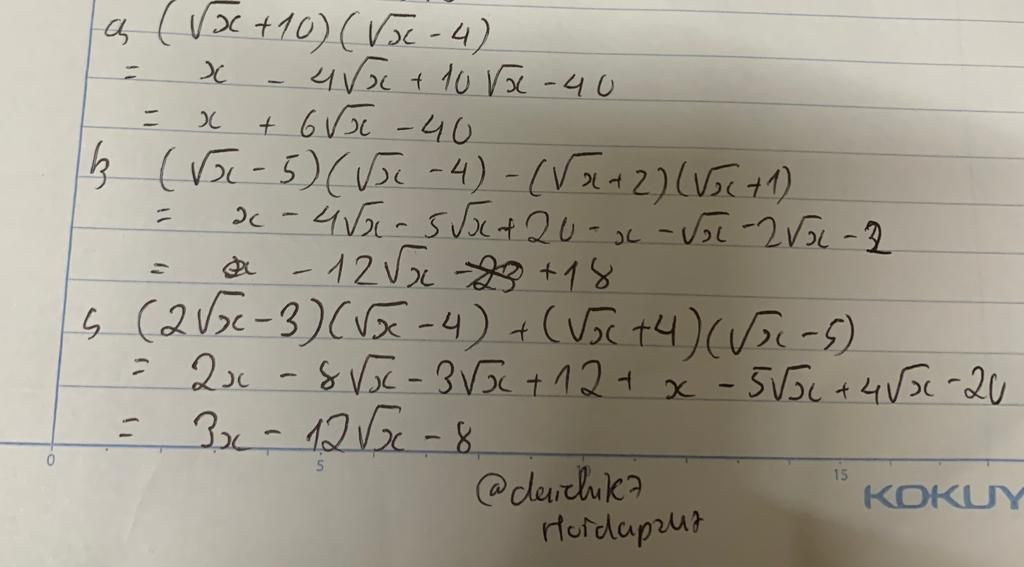 a, (√x + 10)(√x - 4)
= x - 4√x + 10√x - 40
= x + 6√x - 40
b, (√x - 5)(√x - 4) - (√x + 2)(√x + 1)
= x - 4√x - 5√x + 20 - x - √x - 2√x - 2
= - 12√x + 18
c, (2√x - 3)(√x - 4) + (√x + 4)(√x - 5)
= 2x - 8√x - 3√x + 12 + x - 5√x + 4√x - 20
= 3x - 12√x - 8
0 5 15
KOKUY